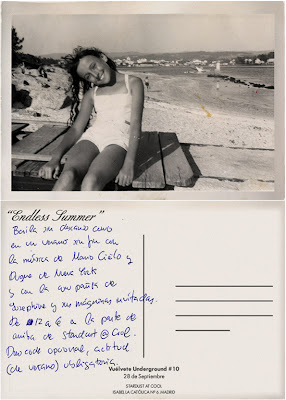 "Endless Summer"
Baila sin descanso como
en un verano sin fin con
la música de Mano Cielo y
Duque de New York
y con la compañía de
Josephine y sus máquinas invitadas.
De 12 a 6 a la parte de
arriba de Stardust @ Cool.
Dress code opcional, actitud
(de verano) obligatoria.
Vuélvete Underground #10
28 de Septiembre
STARDUST AT COOL
ISABELLA CATÓLICA Nº 6. MADRID